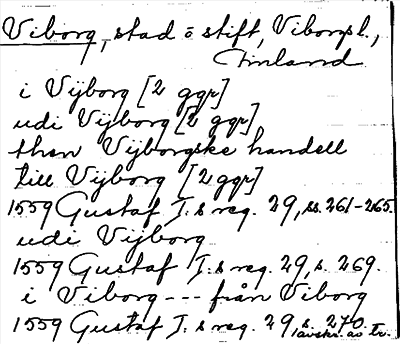 Viborg, stad o stift, Viborgsl.,
Finland
i Vijborg [2 ggr]
udi Vijborg [2 ggr]
then Vijborgske handell
till Vijborg [2 ggr]
1559 Gustaf I.s reg. 29, ss. 261-265.
udi Vijborg
1559 Gustaf I.s reg. 29, s. 269.
i Viborg --- från Viborg
1559 Gustaf I.s reg. 29, s. 270.
avskr. av tr.